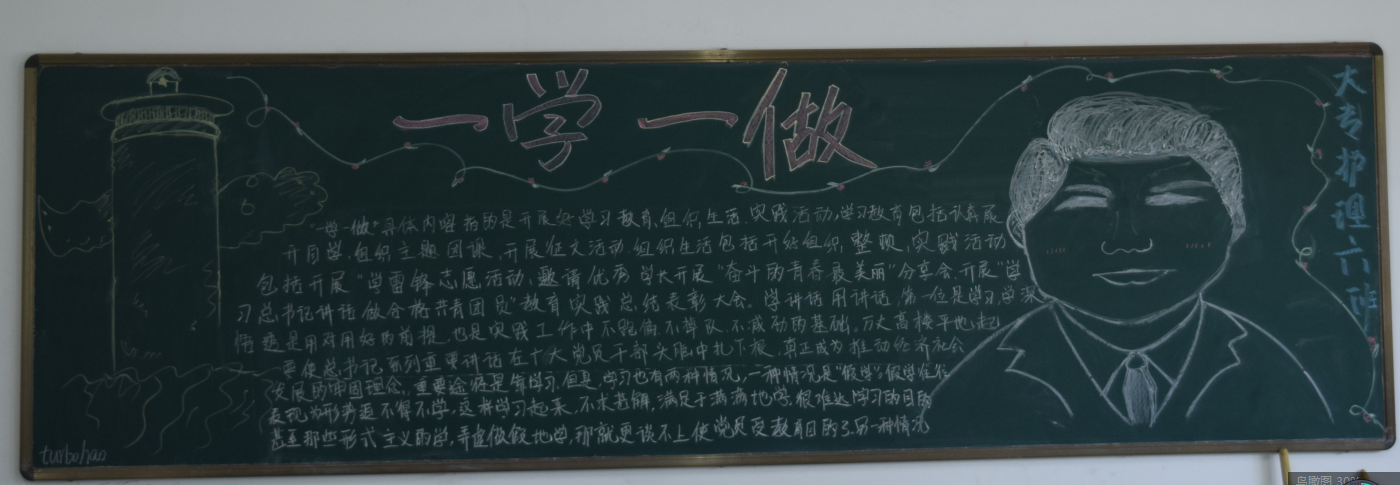 一学一做
大专护理六班
"一学一做"具体内容指的是开展好学习教育,组织生活,实践活动,学习教育包括认真展
开自学,组织主题团课,开展征文活动,组织生活包括开好组织,整顿,实践活动
包括开展"学雷锋志愿活动,邀请优秀学长开展"奋斗的青春最美丽"分享会,开展"学
习总书记讲话做合格共青团员"教育实践总结表彰大会。学讲话用讲话,第一位是学习,学深
悟透是用对用好的前提,也是实践工作中不跑偏不掉队,不减劲的基础。万丈高楼平地起
要使总书记系列重要讲话在广大党员干部头脑中扎下根,真正成为推动经济社会
发展的牢固理念,重要途径是靠学习,但是,学习也有两种情况,一种情况是"假学"假学往往
表现为形势逼不得不学,这样学习起来,不求甚解,满足于满满地学,很难达学习的目的
甚至那些形式主义的学,弄虚做假地学,那就更谈不上使党员受教育目的了。另一种情况
turbohao
鸟瞰图 30%